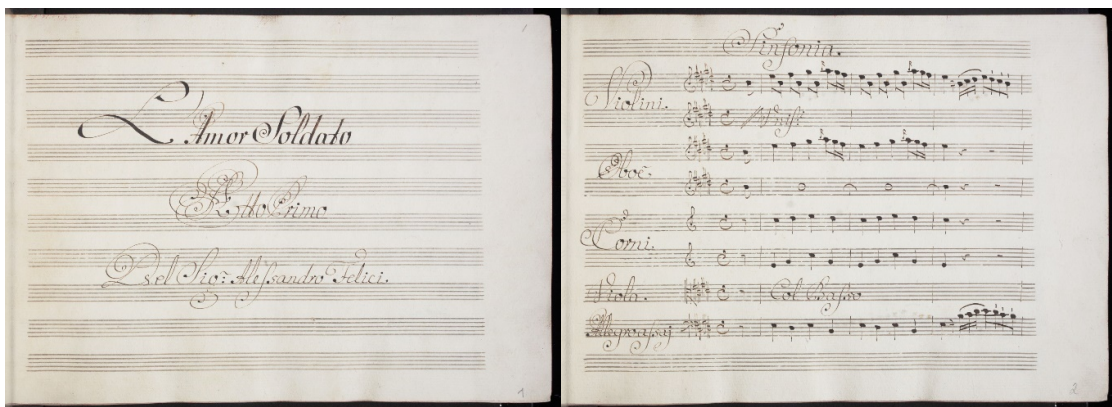 1
L'Amor Soldato
Atto Primo
Del Sig.r Alessandro Felici.
1
Sinfonia.
Violini.
Unis.
Oboè.
Corni.
Viola.
Col Basso
Allegro assaj
2